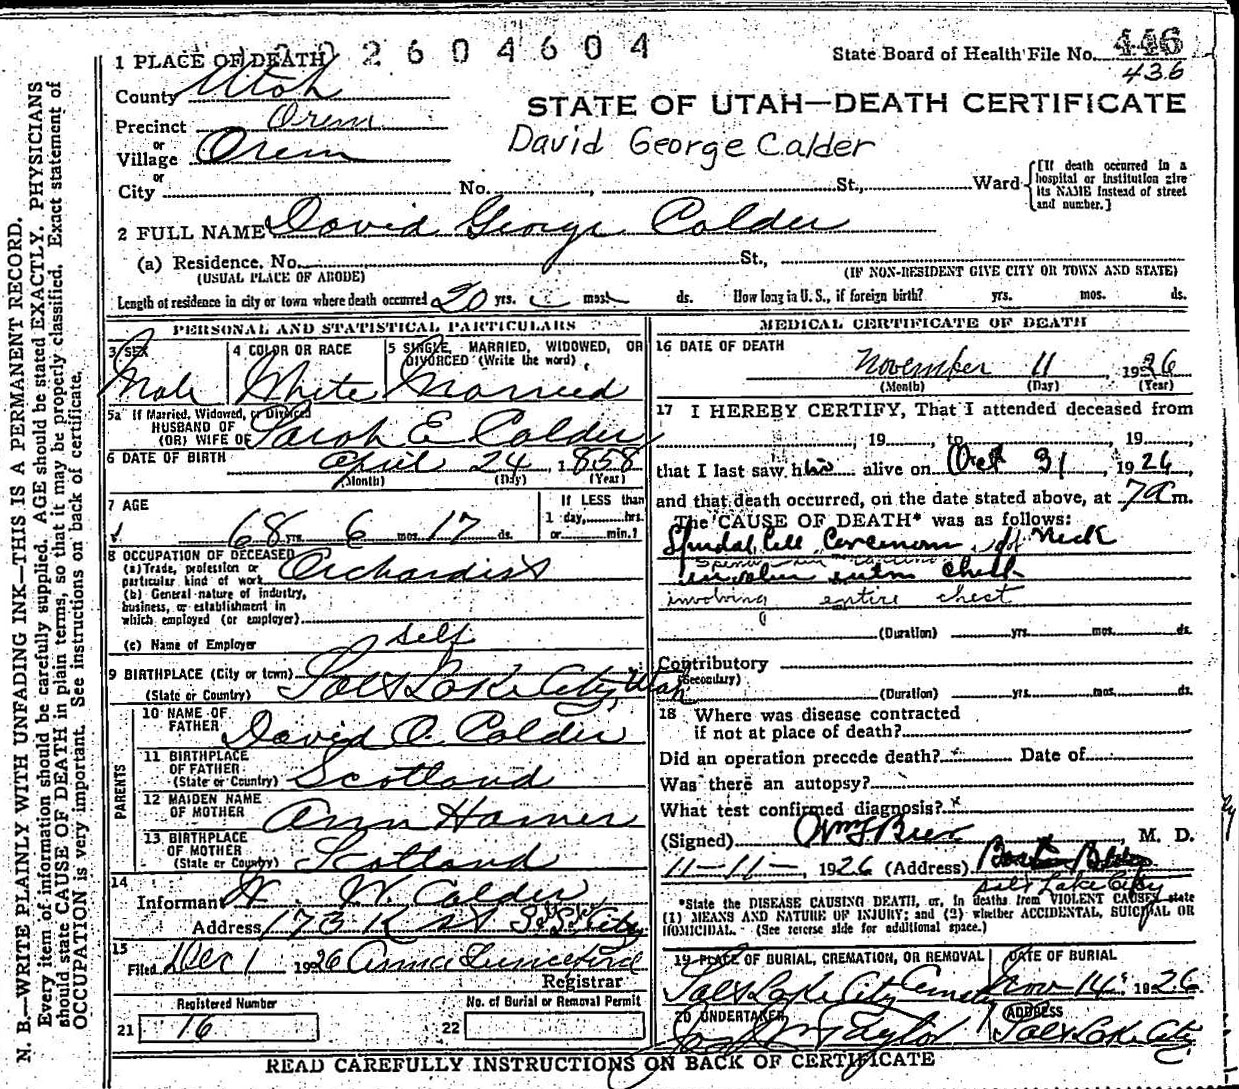 2604604
State Board of Health File No. 446
436
1 PLACE OF DEATH
County Utah
STATE OF UTAH—DEATH CERTIFICATE
Precinct Orem
or
Village Orem
David George Calder
or
City No. , St., Ward
[If death occurred in a hospital or institution give its NAME instead of street and number.]
2 FULL NAME David George Calder
(a) Residence. No. St.,
(USUAL PLACE OF ABODE) (IF NON-RESIDENT GIVE CITY OR TOWN AND STATE)
Length of residence in city or town where death occurred 20 yrs. mos. ds. How long in U. S., if foreign birth? yrs. mos. ds.
PERSONAL AND STATISTICAL PARTICULARS
3 SEX 4 COLOR OR RACE 5 SINGLE, MARRIED, WIDOWED, OR DIVORCED (Write the word)
Male White Married
5a If Married, Widowed, or Divorced
HUSBAND OF
(OR) WIFE OF Sarah E Calder
6 DATE OF BIRTH April 24, 1858
(Month) (Day) (Year)
7 AGE If LESS than
68 yrs. 6 mos. 17 ds. 1 day, hrs.
or min.?
8 OCCUPATION OF DECEASED
(a) Trade, profession or particular kind of work Orchardist
(b) General nature of industry, business, or establishment in which employed (or employer)
(c) Name of Employer self
9 BIRTHPLACE (City or town) Salt Lake City, Utah
(State or Country)
PARENTS
10 NAME OF FATHER David O. Calder
11 BIRTHPLACE OF FATHER (State or Country) Scotland
12 MAIDEN NAME OF MOTHER Ann Hamer
13 BIRTHPLACE OF MOTHER (State or Country) Scotland
14
Informant H. W. Calder
Address 173 K St S. L. City
15
Filed Dec 1 1926 Anna
Registrar
Registered Number No. of Burial or Removal Permit
21 16 22
MEDICAL CERTIFICATE OF DEATH
16 DATE OF DEATH
November 11 1926
(Month) (Day) (Year)
17 I HEREBY CERTIFY, That I attended deceased from
, 19 , to , 19 ,
that I last saw him alive on Oct 31, 1926,
and that death occurred, on the date stated above, at 7 a m.
The CAUSE OF DEATH* was as follows:
Spindal Cell Carcenom of Neck
involving entire chest
involving entire chest
(Duration) yrs. mos. ds.
Contributory
(Secondary)
(Duration) yrs. mos. ds.
18 Where was disease contracted
if not at place of death?
Did an operation precede death? Date of
Was there an autopsy?
What test confirmed diagnosis?
(Signed) , M. D.
11-11-, 1926 (Address) Boston Bldg
Salt Lake City
*State the DISEASE CAUSING DEATH, or, in deaths from VIOLENT CAUSES, state
(1) MEANS AND NATURE OF INJURY; and (2) whether ACCIDENTAL, SUICIDAL OR
HOMICIDAL. (See reverse side for additional space.)
19 PLACE OF BURIAL, CREMATION, OR REMOVAL DATE OF BURIAL
Salt Lake City Cemetery Nov 14 1926
20 UNDERTAKER ADDRESS
Taylor Salt Lake City
READ CAREFULLY INSTRUCTIONS ON BACK OF CERTIFICATE
N. B.—WRITE PLAINLY WITH UNFADING INK—THIS IS A PERMANENT RECORD.
Every item of information should be carefully supplied. AGE should be stated EXACTLY. PHYSICIANS
should state CAUSE OF DEATH in plain terms, so that it may be properly classified. Exact statement of
OCCUPATION is very important. See instructions on back of certificate.